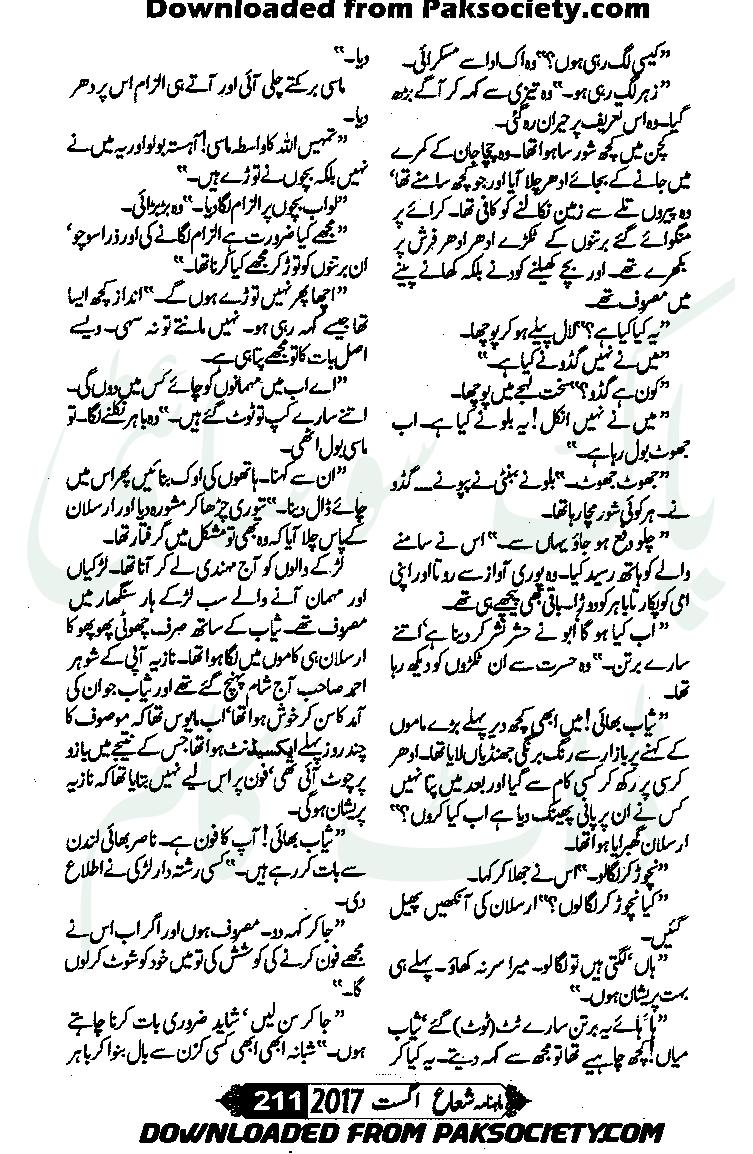 Downloaded from Paksociety.com
”کیسی لگ رہی ہوں؟“ وہ اک ادا سے مسکرائی۔
”زہر لگ رہی ہو۔“ وہ تیزی سے کہہ کر آگے بڑھ
گیا۔ وہ اس تعریف پر حیران رہ گئی۔
کچن میں کچھ شور سا ہوا تھا۔ وہ چچا جان کے کمرے
میں جانے کے بجائے ادھر چلا آیا اور جو کچھ سامنے تھا‘
وہ پیروں تلے سے زمین نکالنے کو کافی تھا۔ کرائے پر
منگوائے گئے برتنوں کے ٹکڑے ادھر ادھر فرش پر
بکھرے تھے۔ اور بچے کھیلنے کودنے بلکہ کھانے پینے
میں مصروف تھے۔
”یہ کیا کیا ہے؟“ لال پیلے ہو کر پوچھا۔
”میں نے نہیں گڈو نے کیا ہے۔“
”کون ہے گڈو؟“ سخت لہجے میں پوچھا۔
”میں نے نہیں انکل! یہ بلو نے کیا ہے۔ اب
جھوٹ بول رہا ہے۔“
”جھوٹ جھوٹ۔“ بلو نے بنٹی نے پپو نے۔۔۔ گڈو
نے۔ ہر کوئی شور مچا رہا تھا۔
”چلو دفع ہو جاؤ یہاں سے۔“ اس نے سامنے
والے کو ہاتھ رسید کیا۔ وہ پوری آواز سے روتا اور اپنی
امی کو پکارتا باہر کو دوڑا۔ باقی بھی پیچھے ہی تھے۔
”اب کیا ہو گا ابو نے حشر نشر کر دینا ہے‘ اتنے
سارے برتن۔“ وہ حسرت سے ان ٹکڑوں کو دیکھ رہا
تھا۔
”ثیاب بھائی! میں ابھی کچھ دیر پہلے بڑے ماموں
کے کہنے پر بازار سے رنگ برنگی جھنڈیاں لایا تھا۔ ادھر
کرسی پر رکھ کر کسی کام سے گیا اور بعد میں پتا نہیں
کس نے ان پر پانی پھینک دیا ہے اب کیا کروں؟“
ارسلان گھبرایا ہوا تھا۔
”نچوڑ کر لگا لو۔“ اس نے جھلا کر کہا۔
”کیا نچوڑ کر لگا لوں؟“ ارسلان کی آنکھیں پھیل
گئیں۔
”ہاں‘ لگتی ہیں تو لگا لو۔ میرا سر نہ کھاؤ۔ پہلے ہی
بہت پریشان ہوں۔“
”ہا‘ ہائے یہ برتن سارے ٹٹ (ٹوٹ) گئے‘ ثیاب
میاں! کچھ چاہیے تھا تو مجھ سے کہہ دیتے۔ یہ کیا کر
دیا۔“
ماسی برکتے چلی آئی اور آتے ہی الزام اس پر دھر
دیا۔
”تمہیں اللہ کا واسطہ ماسی! آہستہ بولو اور یہ میں نے
نہیں بلکہ بچوں نے توڑے ہیں۔“
”لو اب بچوں پر الزام لگا دیا۔“ وہ بڑبڑائی۔
”مجھے کیا ضرورت ہے الزام لگانے کی اور ذرا سوچو‘
ان برتنوں کو توڑ کر مجھے کیا کرنا تھا۔“
”اچھا پھر نہیں توڑے ہوں گے۔“ انداز کچھ ایسا
تھا جیسے کہہ رہی ہو۔ نہیں مانتے تو نہ سہی۔ ویسے
اصل بات کا تو مجھے پتا ہی ہے۔
”اے اب میں مہمانوں کو چائے کس میں دوں گی۔
اتنے سارے کپ تو ٹوٹ گئے ہیں۔“ وہ باہر نکلنے لگا۔ تو
ماسی بول اٹھی۔
”ان سے کہنا۔ ہاتھوں کی اوک بنائیں پھر اس میں
چائے ڈال دینا۔“ تیوری چڑھا کر مشورہ دیا اور ارسلان
کے پاس چلا آیا کہ وہ بھی تو مشکل میں گرفتار تھا۔
لڑکے والوں کو آج مہندی لے کر آنا تھا۔ لڑکیاں
اور مہمان آنے والے سب لڑکے ہار سنگھار میں
مصروف تھے۔ ثیاب کے ساتھ صرف چھوٹی پھوپھو کا
ارسلان ہی کاموں میں لگا ہوا تھا۔ نازیہ آپی کے شوہر
احمد صاحب آج شام پہنچ گئے تھے اور ثیاب جو ان کی
آمد کا سن کر خوش ہوا تھا‘ اب مایوس تھا کہ موصوف کا
چند روز پہلے ایکسیڈنٹ ہوا تھا جس کے نتیجے میں بازو
پر چوٹ آئی تھی‘ فون پر اس لیے نہیں بتایا تھا کہ نازیہ
پریشان ہو گی۔
”ثیاب بھائی! آپ کا فون ہے۔ ناصر بھائی لندن
سے بات کر رہے ہیں۔“ کسی رشتہ دار لڑکی نے اطلاع
دی۔
”جا کر کہہ دو۔ مصروف ہوں اور اگر اب اس نے
مجھے فون کرنے کی کوشش کی تو میں خود کو شوٹ کر لوں
گا۔“
”جا کر سن لیں‘ شاید ضروری بات کرنا چاہتے
ہوں۔“ شبانہ ابھی ابھی کسی کزن سے بال بنوا کر باہر
ماہنامہ شعاع اگست 2017 211
DOWNLOADED FROM PAKSOCIETY.COM